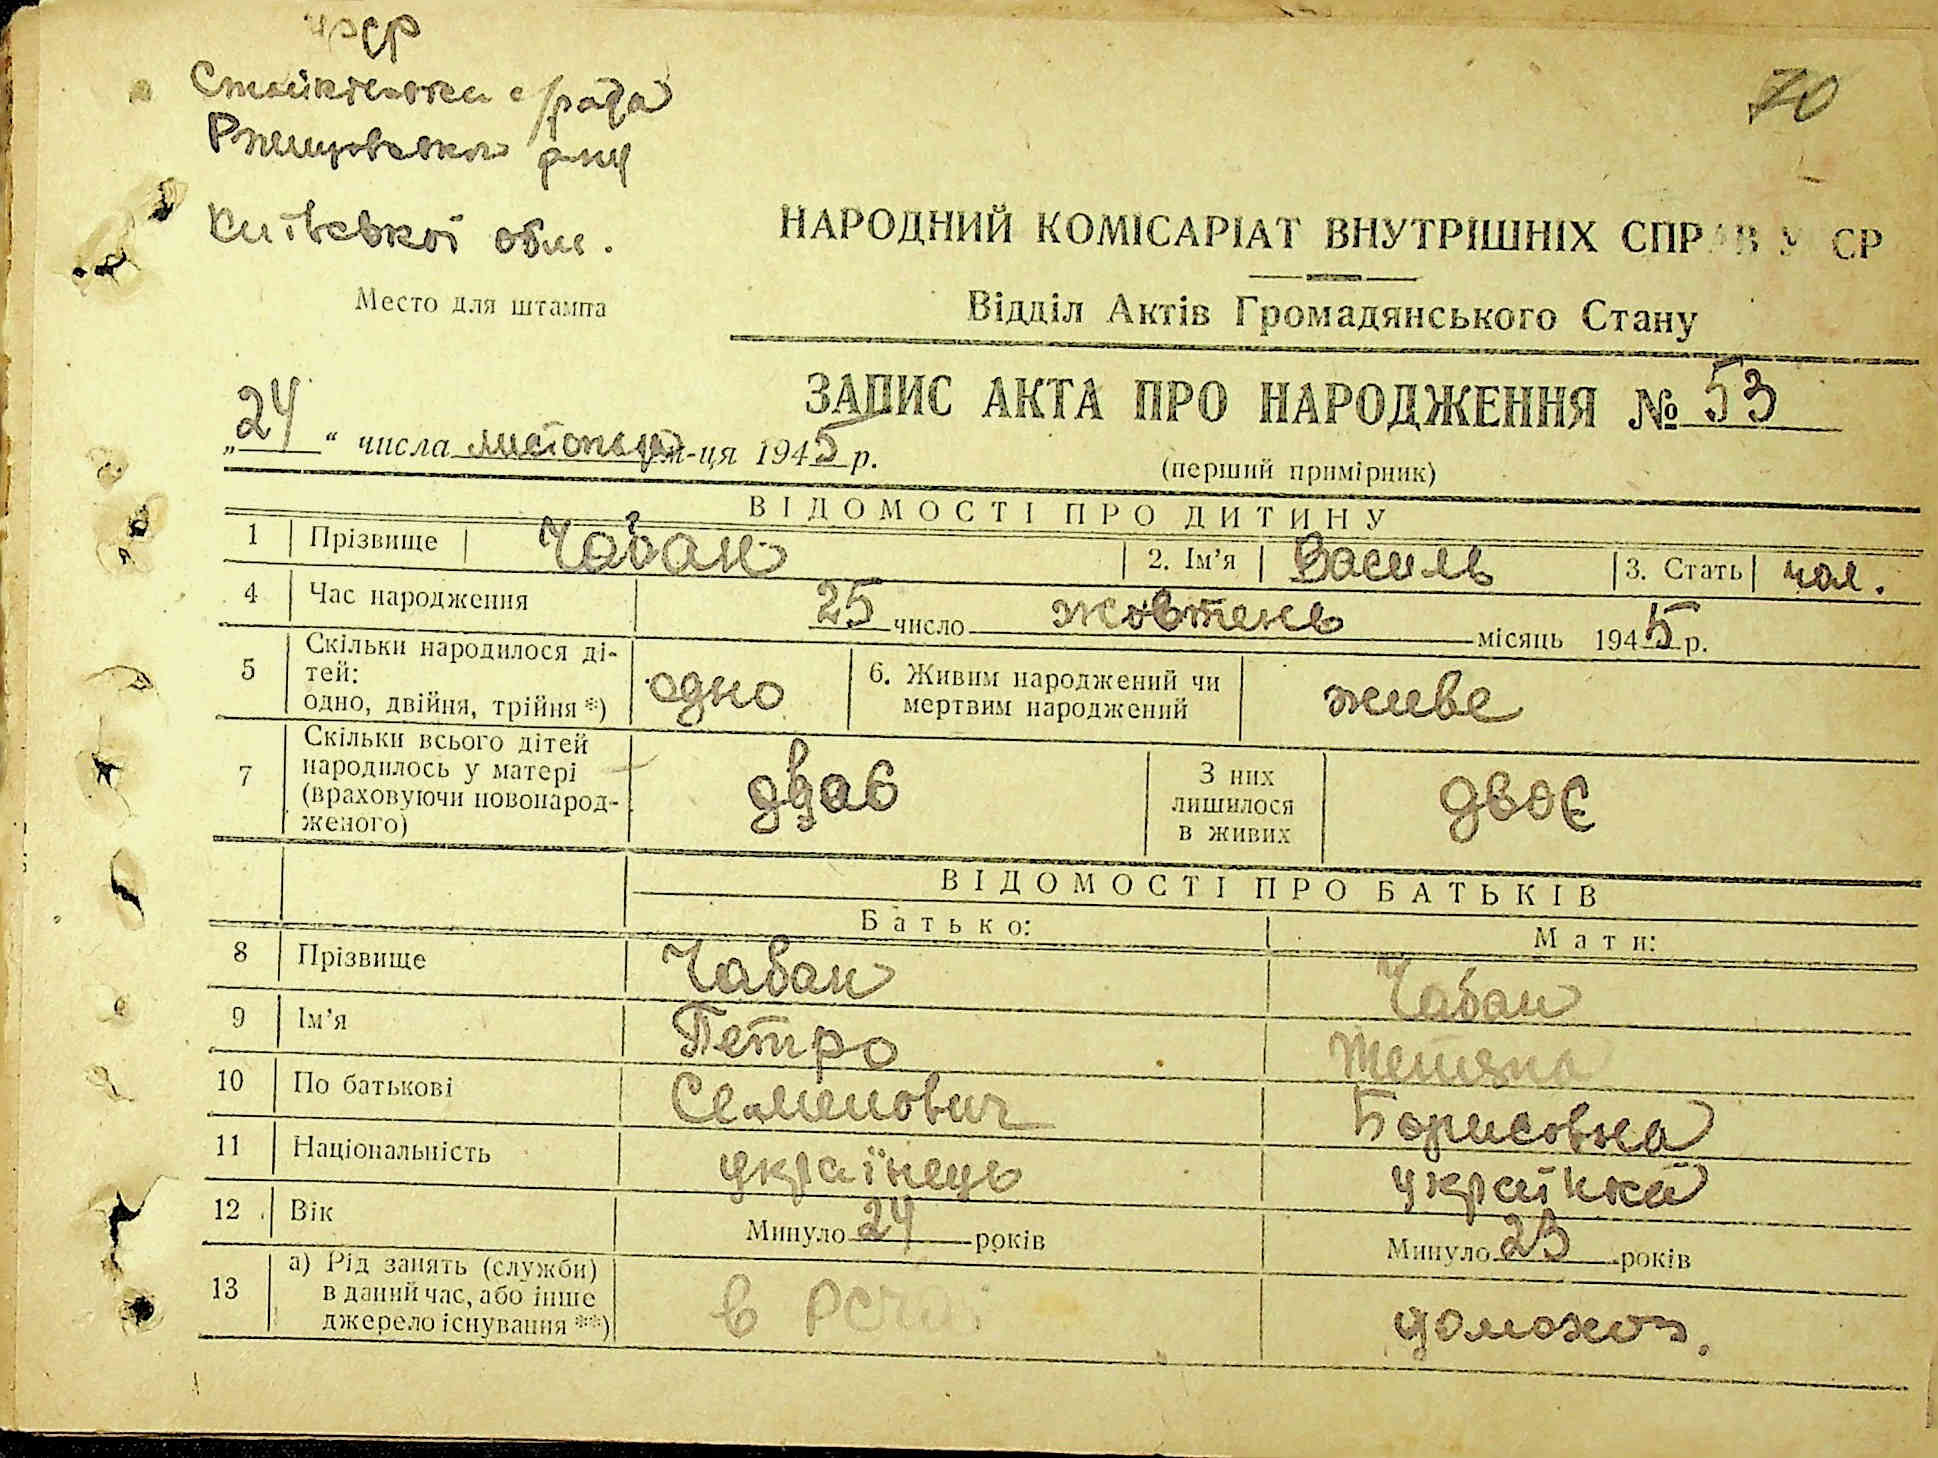 УРСР
с/рада
Ржищівського р-ну
Київської обл.
70
НАРОДНИЙ КОМІСАРІАТ ВНУТРІШНІХ СПРАВ УРСР
Место для штампа
Відділ Актів Громадянського Стану
ЗАПИС АКТА ПРО НАРОДЖЕННЯ № 53
„24“ числа листопад м-ця 1945 р.
(перший примірник)
ВІДОМОСТІ ПРО ДИТИНУ
1 Прізвище Чабан 2. Ім'я Василь 3. Стать чол.
4 Час народження 25 число жовтень місяць 1945 р.
5 Скільки народилося ді-
тей:
одно, двійня, трійня *) одно 6. Живим народжений чи
мертвим народжений живе
7 Скільки всього дітей
народилось у матері
(враховуючи новонарод-
женого) двоє З них
лишилося
в живих двоє
ВІДОМОСТІ ПРО БАТЬКІВ
Батько: Мати:
8 Прізвище Чабан Чабан
9 Ім'я Петро Тетяна
10 По батькові Семенович Борисовна
11 Національність українець українка
12 Вік Минуло 24 років Минуло 23 років
13 а) Рід занять (служби)
в даний час, або інше
джерело існування **) в РСЧА домохоз.